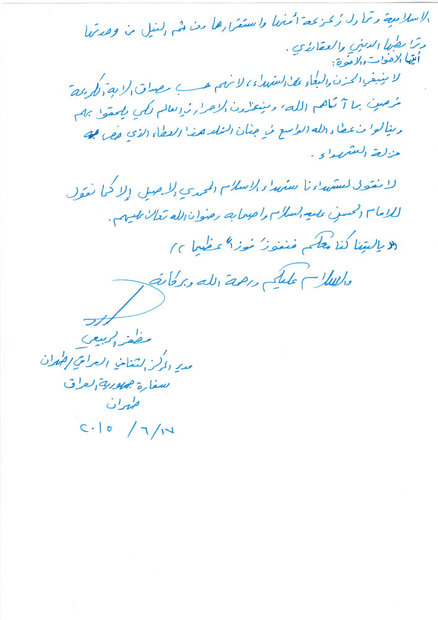 الاسلامية وتحاول زعزعة أمنها واستقرارها ومن ثم النيل من وحدتها
وترابطها الديني والعقائدي.
أيتها الاخوات والاخوة:
لا ينبغي الحزن والبكاء على الشهداء، لانهم حسب مصداق الآية الكريمة
فرحين بما آتاهم الله، وينتظرون الاحرار في العالم لكي يلحقوا بهم
وينالوا من عطاء الله الواسع في جنان الخلد هذا العطاء الذي خص به
منزلة الشهداء.
لا نقول لشهدائنا شهداء الاسلام المحمدي الاصيل إلا كما نقول
للامام الحسين عليه السلام واصحابه رضوان الله تعالى عليهم.
((ياليتنا كنا معكم فنفوز فوزاً عظيما))
والسلام عليكم ورحمة الله وبركاته
مظفر الربيعي
مدير المركز الثقافي العراقي/طهران
سفارة جمهورية العراق
طهران
٢٠١٥/٦/١٧